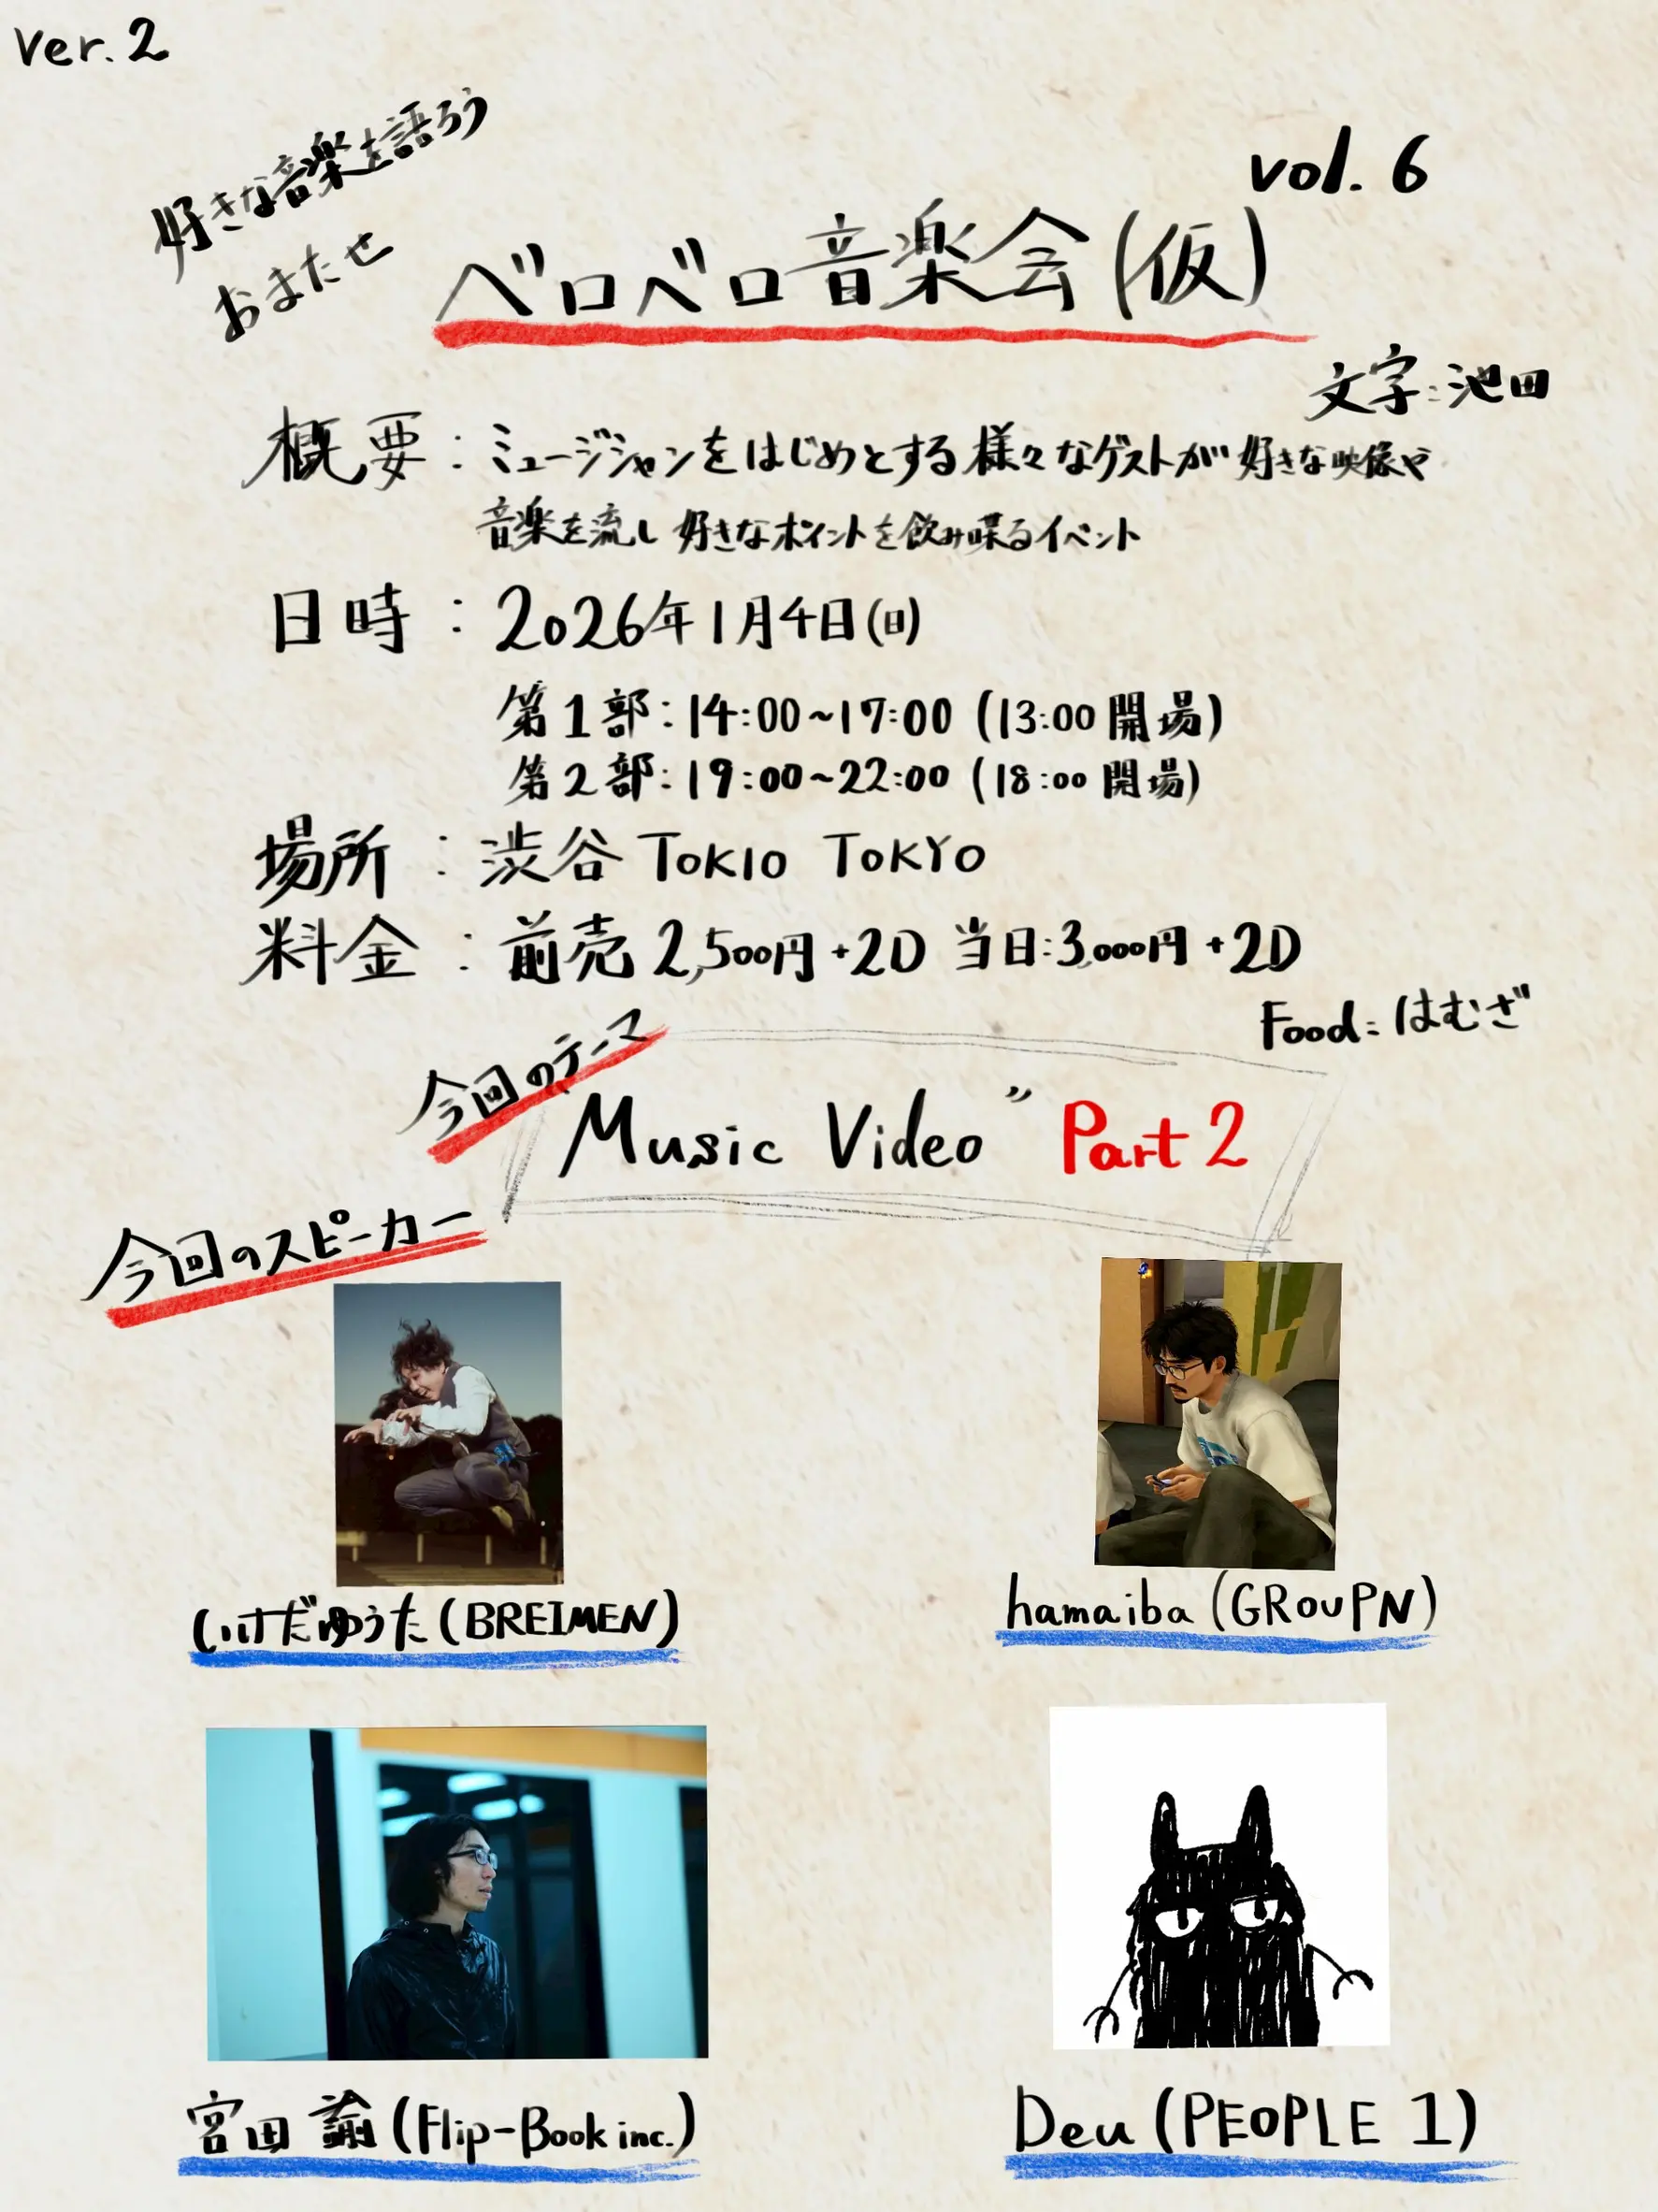 ver.2
好きな音楽を語ろう
おまたせ
vol.6
ベロベロ音楽会(仮)
文字:池田
概要:ミュージシャンをはじめとする様々なゲストが好きな映像や
音楽を流し好きなポイントを飲み喋るイベント
日時:2026年1月4日(日)
第1部:14:00~17:00(13:00開場)
第2部:19:00~22:00(18:00開場)
場所:渋谷 TOKIO TOKYO
料金:前売2,500円+2D 当日:3,000円+2D
Food:はむざ
今回のテーマ
"Music Video" Part 2
今回のスピーカー
いけだゆうた(BREIMEN)
hamaiba(GROUPN)
宮田 諭(Flip-Book inc.)
Deu(PEOPLE 1)